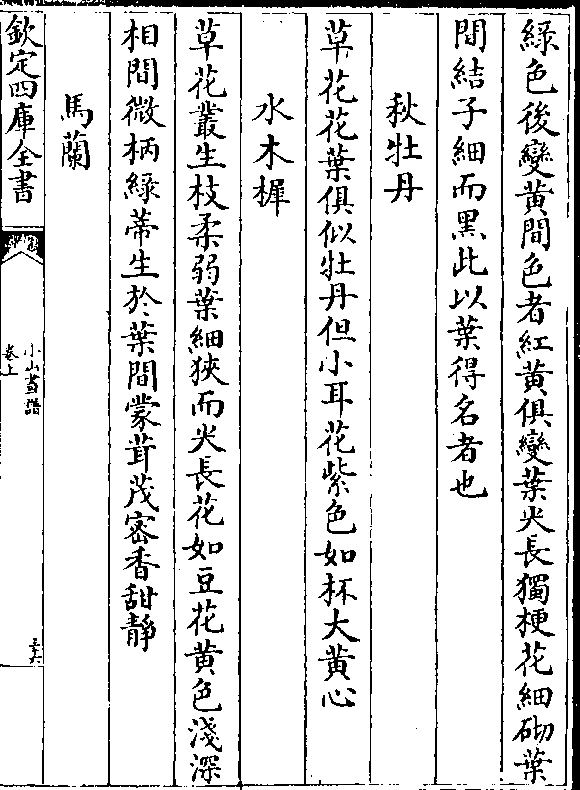 綠色後變黄間色者紅黄俱變葉尖長獨梗花細砌葉
間結子細而黑此以葉得名者也
秋牡丹
草花花葉俱似牡丹但小耳花紫色如杯大黄心
水木樨
草花叢生枝柔弱葉細狹而尖長花如豆花黄色淺深
相間微柄綠蒂生於葉間蒙茸茂密香甜靜
馬蘭
欽定四庫全書
小山畫譜
卷上
三六